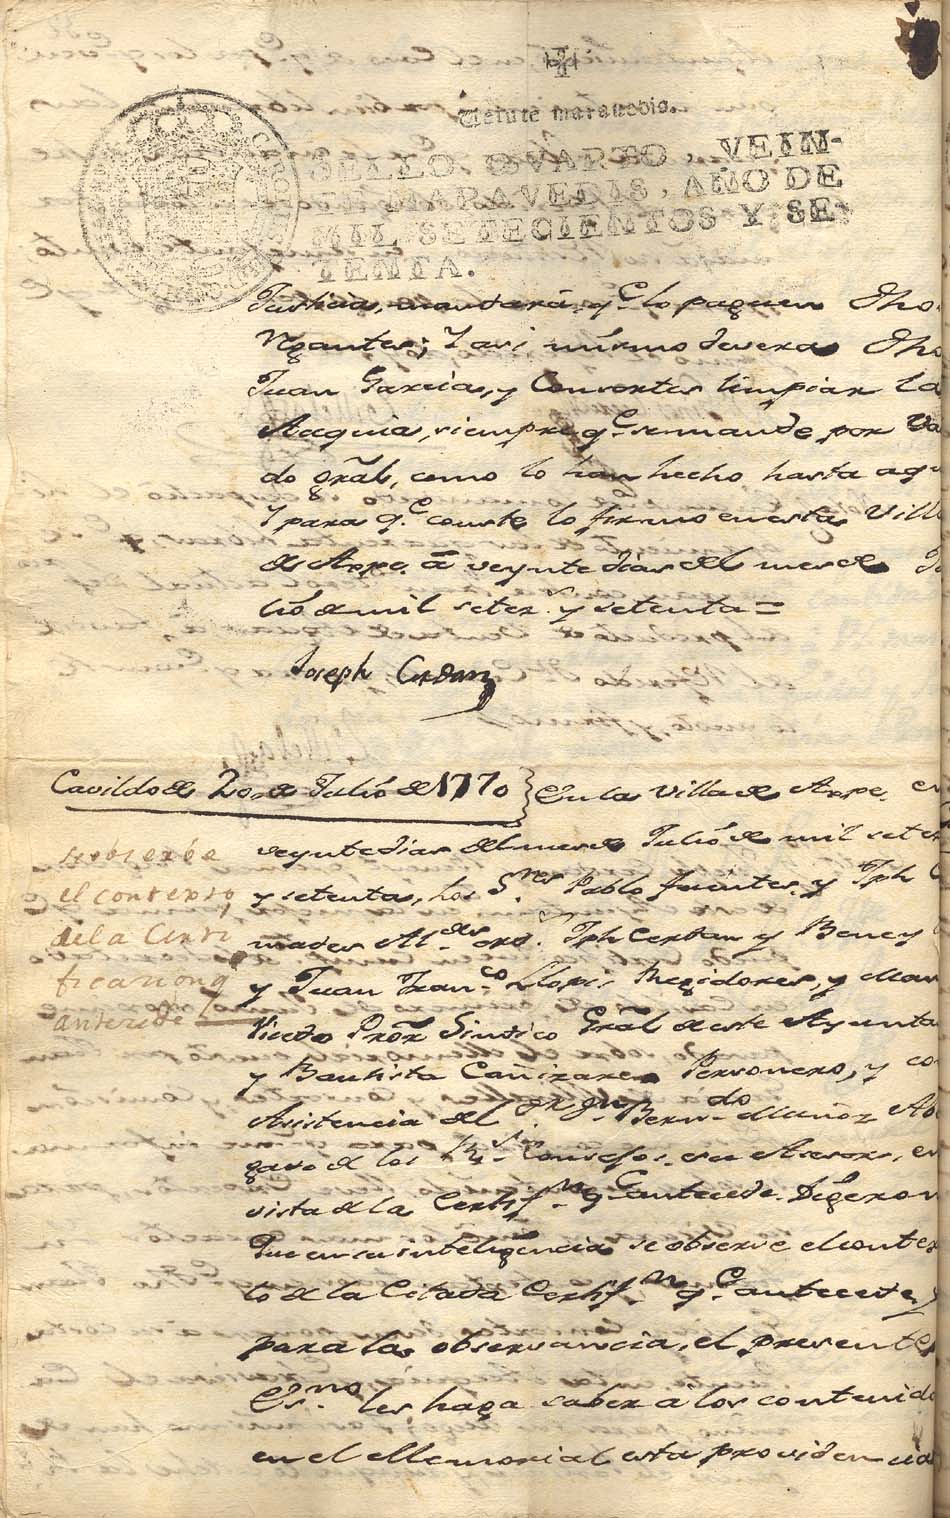 Veinte maravedis.
SELLO QVARTO, VEIN-
TE MARAVEDIS, AÑO DE
MIL SETECIENTOS Y SE-
TENTA.
Justicia, mandará, q.e lo paguen dho
Rgantes; Y asi mismo devera dho
Juan Garcia, y Consortes limpiar la
Asequia, siempre q.e se mande por Va
do gral, como lo han hecho hasta aqu
Y para q.e conste lo firmo en esta Villa
de Aspe a veynte dias del mes de Ju
lio de mil setez.s y setenta =
Joseph Cerdan
Cavildo de 20 de Julio de 1770 } En la Villa de Aspe en
veynte dias del mes de Julio de mil setez
y setenta, los S.res Pablo Fuentes, y Jph
Al.des ord.s Jph Cerdan y Beney
y Juan Fran.co Llopis Regidores, y Man
Vicedo Pror Sindico Gral de este Ayunta
y Bautista Cañizares Personero, y co
Asistencia del Bern.do Muñoz Abo
gado de los R.s Consejos su Asesor, en
vista de la Certif.n q.e antecede. Digeron
Que en su inteligencia se observe el contex
to de la Citada Certif.n q.e antecede, y
para la observancia, el presente
Es.no les haga saber a los contenido
en el Memorial esta providencia
se observe
el contexto
de la Certi
ficacion q
antecede